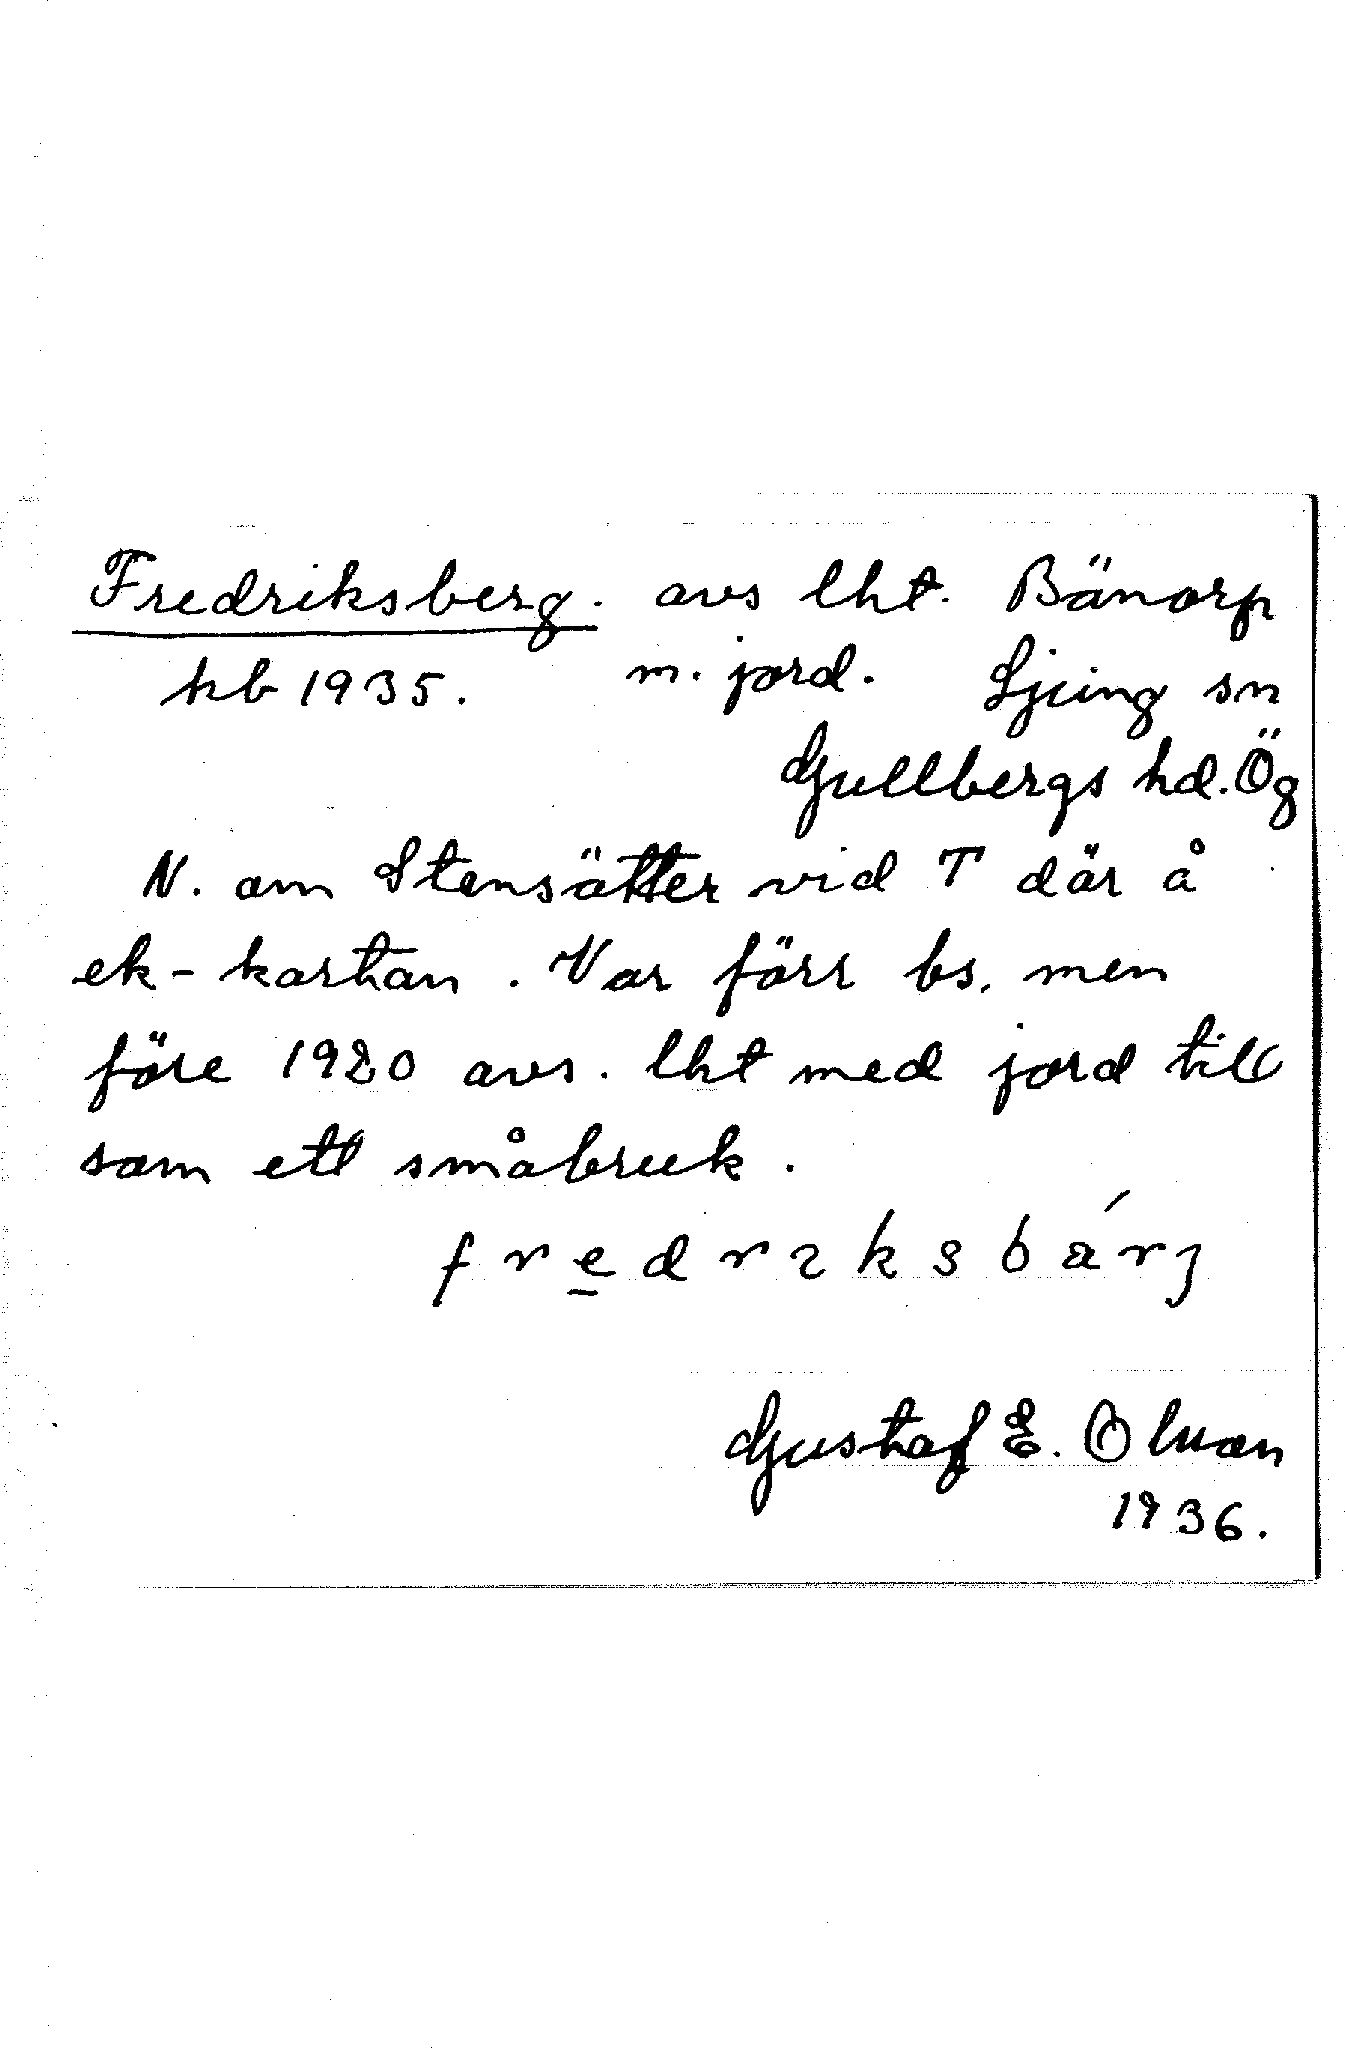 Fredriksberg. avs lht. Bänorp
hb 1935. m. jord. Ljung sn
Gullbergs hd. Ög
N. om Stensätter vid T där å
ek-kartan. Var förr bs. men
före 1920 avs. lht med jord till
som ett småbruk.
fredrɩksbárj
Gustaf E.
1936.